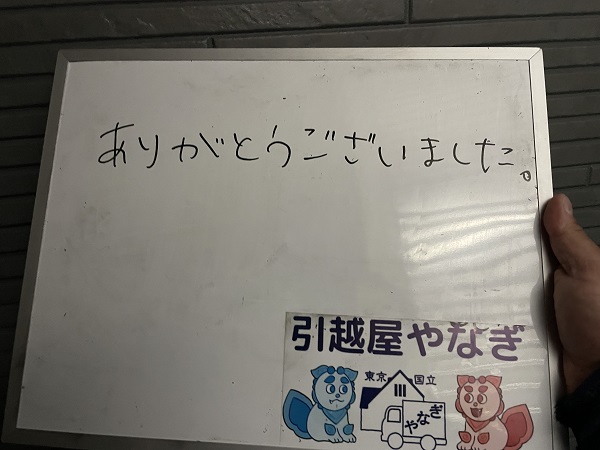 ありがとうございました。
引越屋やなぎ
東京 国立
やなぎ